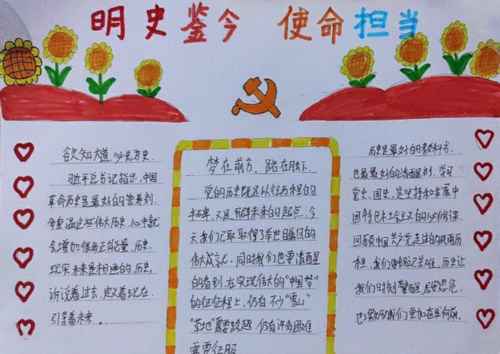 明史鉴今 使命担当
欲知大道，必先为史。
习近平总书记指出，中国
革命历史是最好的营养剂，
多重温这些伟大历史，心中就
会增加很多正能量。历史，
现实，未来是相通的。历史，
诉说着过去，定义着现在，
引导着未来。
梦在前方，路在脚下。
党的历史既是从往历程的
今
天我们已取得了举世瞩目的
伟大成就，同时我们也要清醒
的看到，在实现伟大的“中国梦”
的征程上，仍有不少“雪山”
“草地”需要跨越，仍有许多困难
需要征服
历史是最好的教科书，
也是最好的清醒剂。学习
党史、国史，是坚持和发展中
国特色社会主义的必修课。
回顾中国共产党走过的风雨历
程，我们要铭记英雄，历史让
我们时刻警醒，居安思危，
也鼓励我们更加奋勇向前。